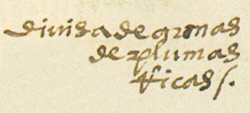 divisa de armas
de plumas
Ricas/.